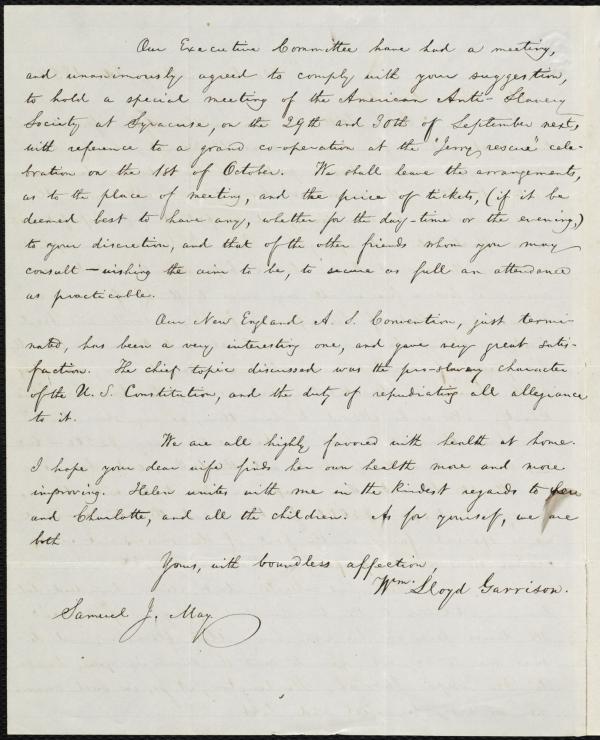 Our Executive Committee have had a meeting,
and unanimously agreed to comply with your suggestion,
to hold a special meeting of the American Anti-Slavery
Society at Syracuse, on the 29th and 30th of September next,
with reference to a grand co-operation at the "Jerry rescue" cele-
bration on the 1st of October. We shall leave the arrangements,
as to the place of meeting, and the price of tickets, (if it be
deemed best to have any, whether for the day-time or the evening,)
to your discretion, and that of the other friends whom you may
consult — wishing the aim to be, to secure as full an attendance
as practicable.
Our New England A. S. Convention, just termi-
nated, has been a very interesting one, and gave very great satis-
faction. The chief topic discussed was the pro-slavery character
of the U. S. Constitution, and the duty of repudiating all allegiance
to it.
We are all highly favored with health at home.
I hope your dear wife finds her own health more and more
improving. Helen unites with me in the kindest regards to her
and Charlotte, and all the children. As for yourself, we are
both
Yours, with boundless affection,
Wm. Lloyd Garrison.
Samuel J. May.